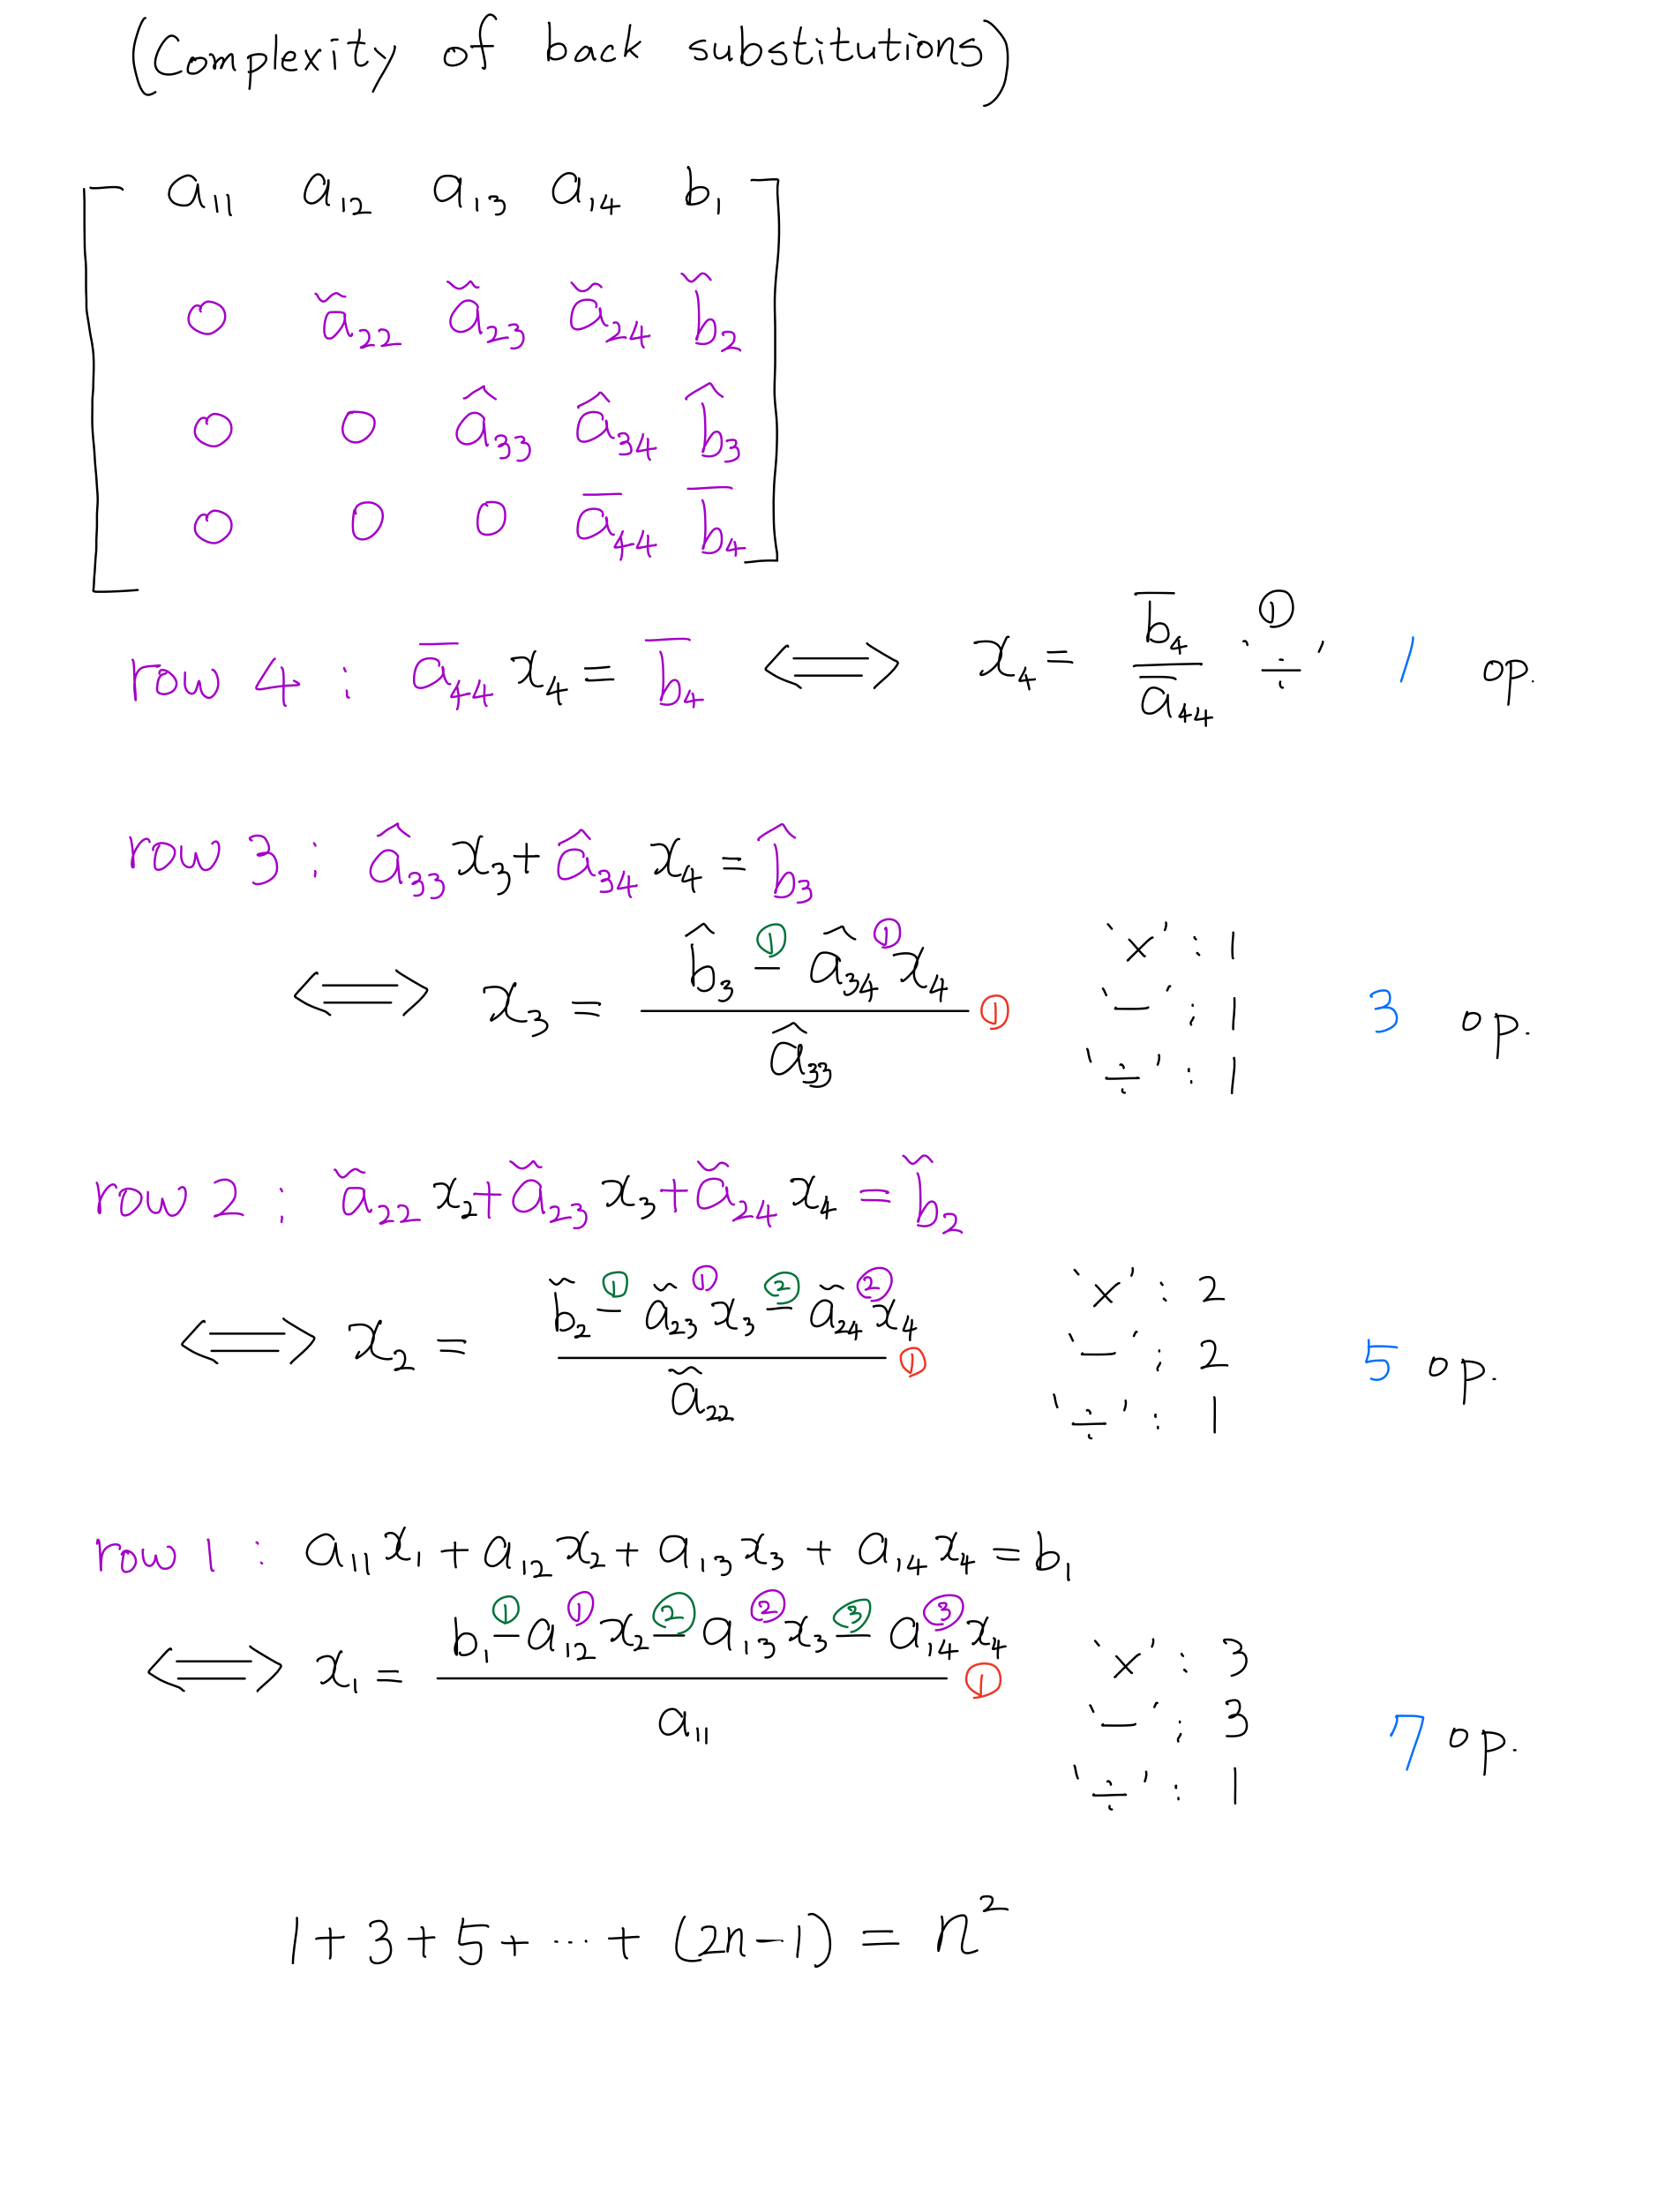 (Complexity of back substitutions)
a₁₁ a₁₂ a₁₃ a₁₄ b₁
0 ã₂₂ ã₂₃ ã₂₄ b̃₂
0 0 â₃₃ â₃₄ b̂₃
0 0 0 ā₄₄ b̄₄
row 4 : ā₄₄ x₄ = b̄₄ ⟺ x₄ = b̄₄ / ā₄₄ ① '÷' 1 op.
row 3 : â₃₃ x₃ + â₃₄ x₄ = b̂₃
⟺ x₃ = (b̂₃ −① â₃₄ ① x₄) / â₃₃ ①
'×' : 1
'−' : 1
'÷' : 1
3 op.
row 2 : ã₂₂ x₂ + ã₂₃ x₃ + ã₂₄ x₄ = b̃₂
⟺ x₂ = (b̃₂ −① ã₂₃ ① x₃ −② ã₂₄ ② x₄) / ã₂₂ ①
'×' : 2
'−' : 2
'÷' : 1
5 op.
row 1 : a₁₁x₁ + a₁₂x₂ + a₁₃x₃ + a₁₄x₄ = b₁
⟺ x₁ = (b₁ −① a₁₂ ① x₂ −② a₁₃ ② x₃ −③ a₁₄ ③ x₄) / a₁₁ ①
'×' : 3
'−' : 3
'÷' : 1
7 op.
1 + 3 + 5 + ··· + (2n−1) = n²